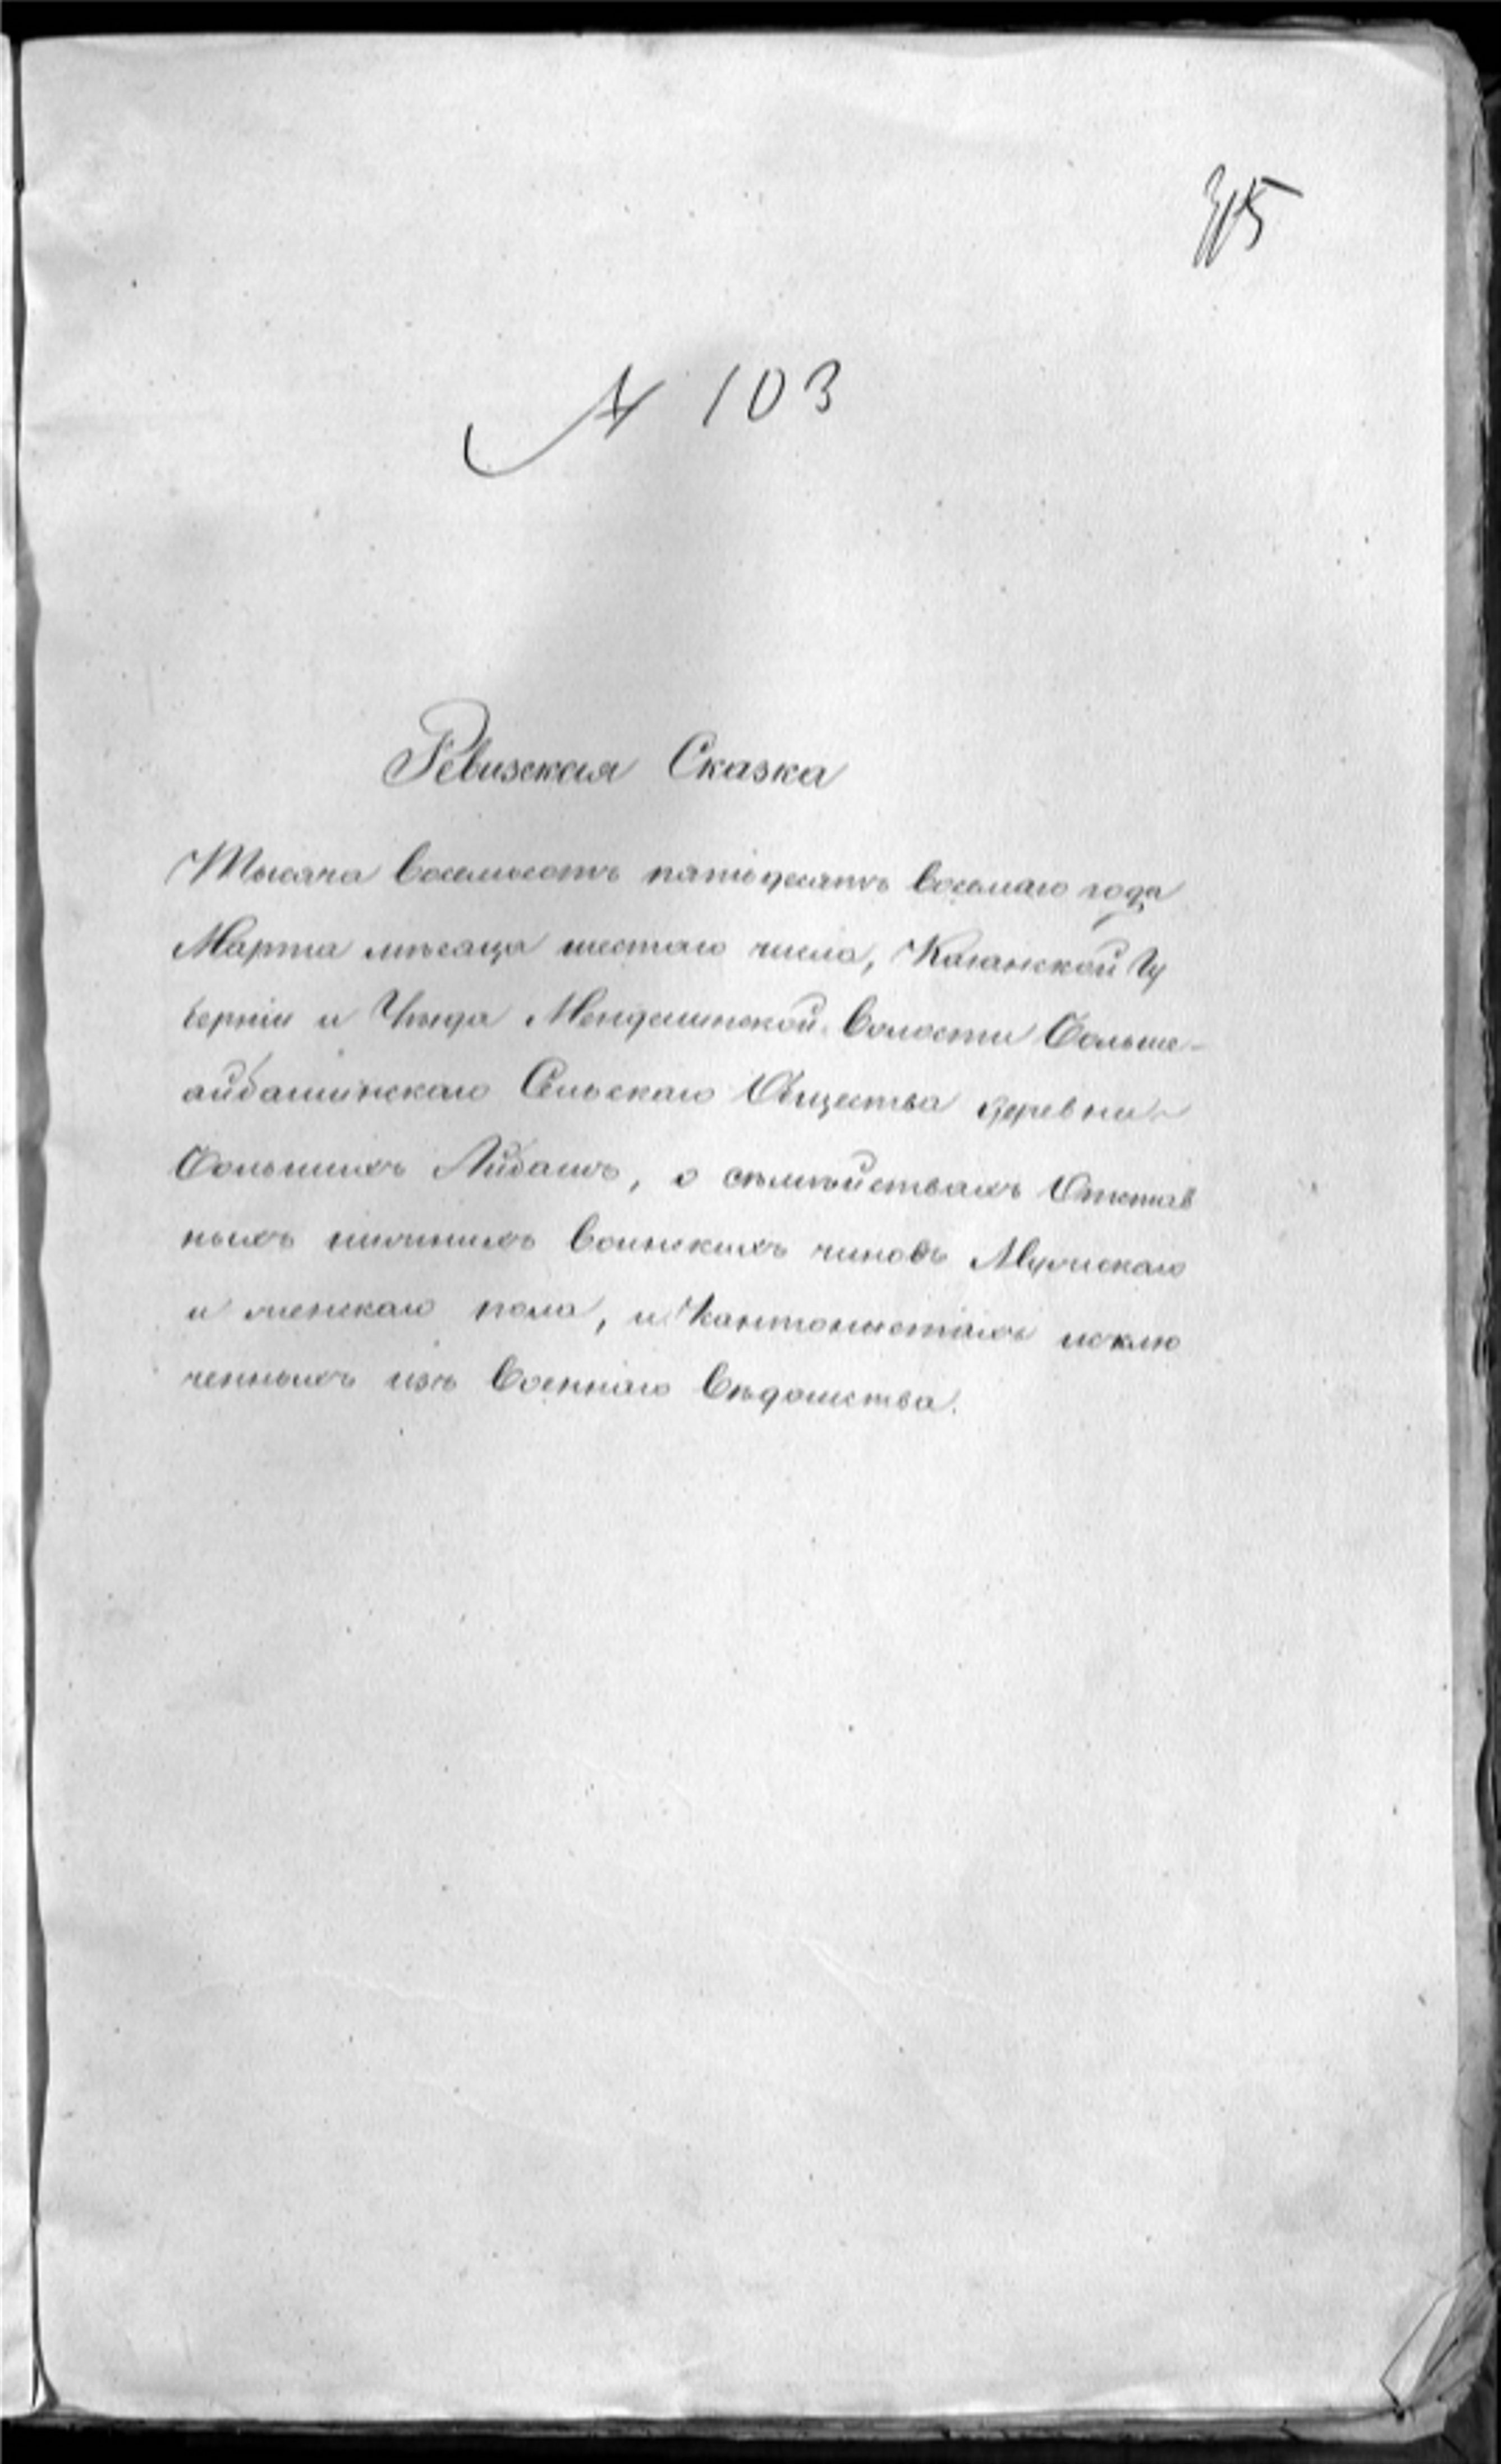 315
№ 103
Ревизская Сказка
Тысяча восемьсотъ пятьдесятъ восьмаго года
Марта мѣсаца шестаго числа, Казанской Гу
берніи и Уѣзда Менделинской волости Больше-
айбашинскаго Сельскаго Общества деревни
Большихъ Айбашъ, о сѣмѣйствахъ Отстав
ныхъ нижнихъ воинскихъ чиновъ Мужскаго
и женскаго пола, и Кантонистахъ исклю
ченныхъ изъ Военнаго вѣдомства.